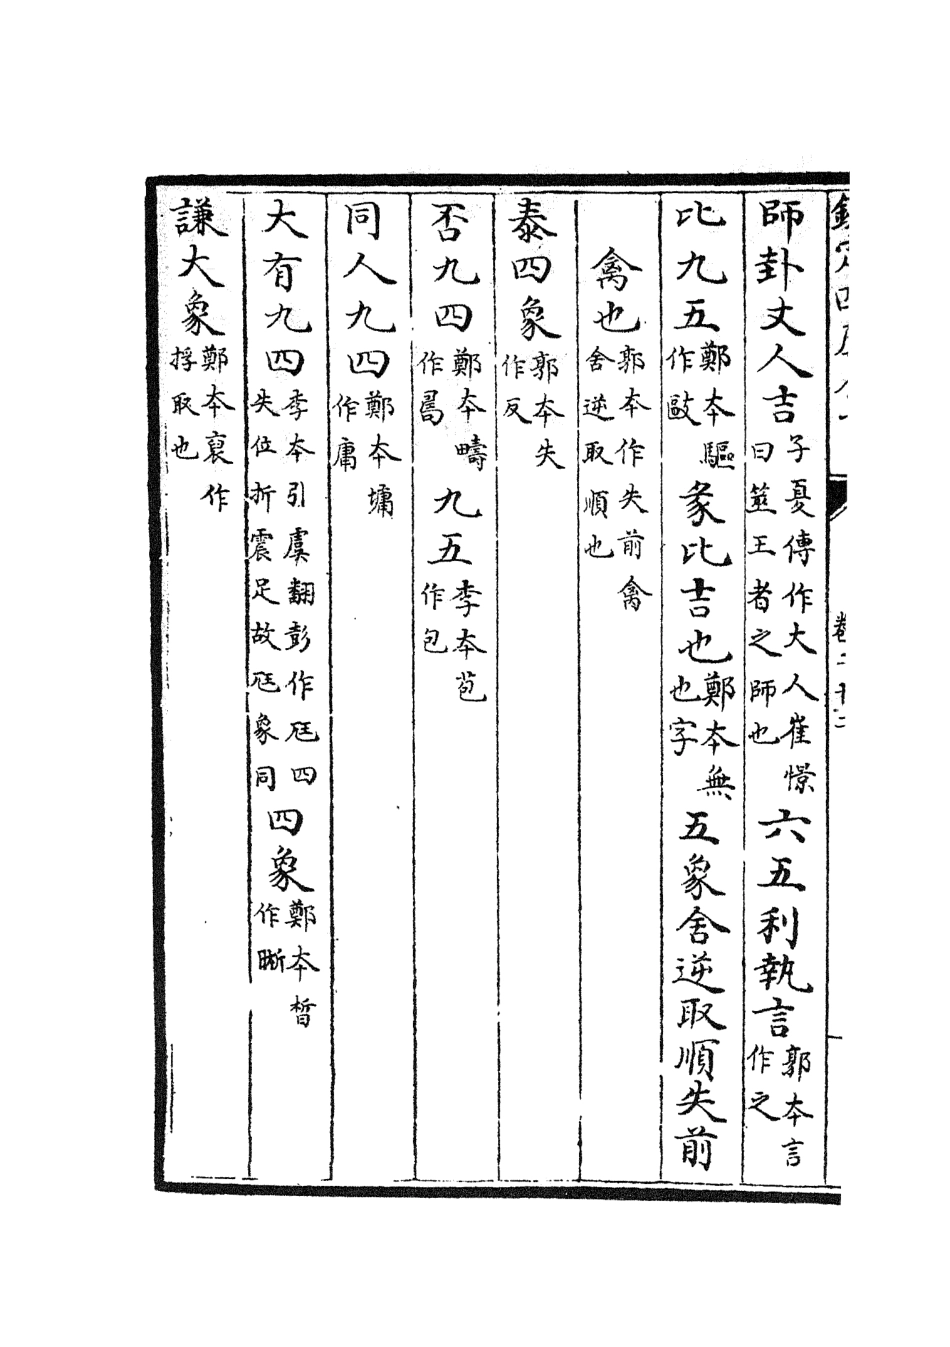 師卦丈人吉子夏傳作大人崔憬曰並王者之師也六五利執言郭本言作之
比九五鄭本驅作敺彖比吉也鄭本無也字五象舍逆取順失前
禽也郭本作失前禽舍逆取順也
泰四象郭本失作反
否九四鄭本疇作𢏚九五李本苞作包
同人九四鄭本墉作庸
大有九四李本引虞翻彭作尫四失位折震足故尫象同四象鄭本晳作晣
謙大象鄭本裒作捊取也